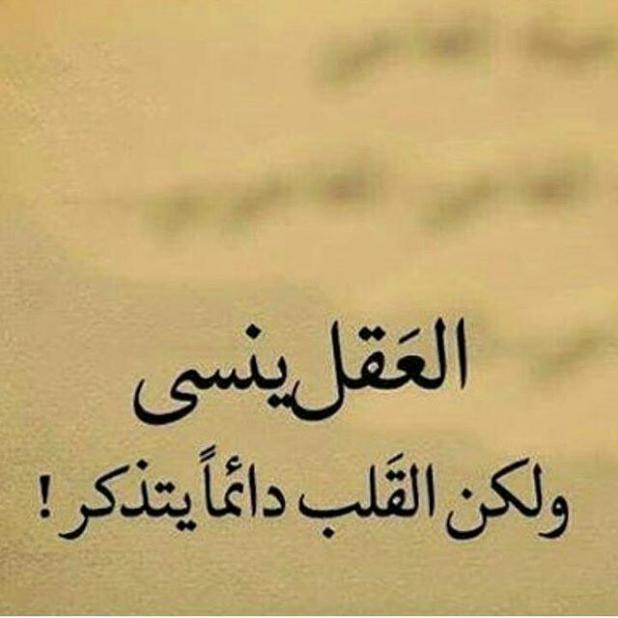 العَقل ينسى
ولكن القَلب دائماً يتذكر !